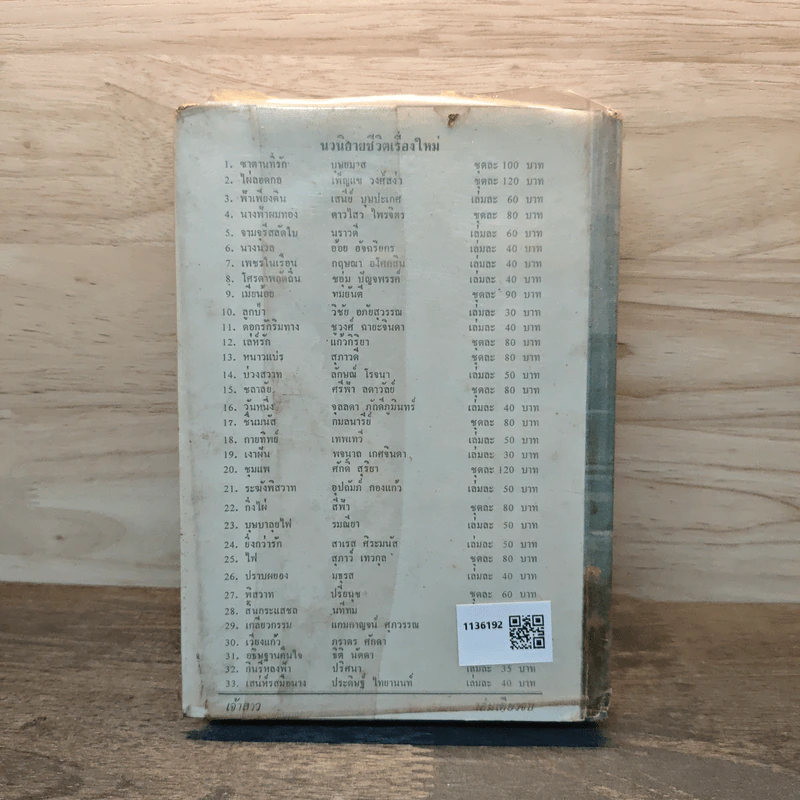 นวนิยายชีวิตเรื่องใหม่
1. ซาตานที่รัก บุษยมาส ชุดละ 100 บาท
2. ไผ่ลอดกอ เพ็ญแข วงศ์สง่า ชุดละ 120 บาท
3. ฟ้าเพียงดิน เสนีย์ บุษปะเกศ เล่มละ 60 บาท
4. นางฟ้าผมทอง ดาวไสว ไพรจิตร ชุดละ 80 บาท
5. จามจุรีสลัดใบ นราวดี เล่มละ 60 บาท
6. นางนวล อ้อย อัจฉริยกร เล่มละ 40 บาท
7. เพชรในเรือน กฤษณา อโศกสิน เล่มละ 40 บาท
8. โศรดาพลัดถิ่น ชอุ่ม ปัญจพรรค์ เล่มละ 40 บาท
9. เมียน้อย ทมยันตี ชุดละ 90 บาท
10. ลูกป่า วิชัย อภัยสุวรรณ เล่มละ 30 บาท
11. ดอกรักริมทาง ชูวงศ์ ฉายะจินดา เล่มละ 40 บาท
12. เล่ห์รัก แก้วกิริยา ชุดละ 80 บาท
13. หนาวแปร สุภาวดี ชุดละ 80 บาท
14. บ่วงสวาท ลักษณ์ โรจนา เล่มละ 50 บาท
15. ชลาลัย ศรีฟ้า ลดาวัลย์ ชุดละ 80 บาท
16. วันหนึ่ง จุลลดา ภักดีภูมินทร์ เล่มละ 40 บาท
17. ชื่นมนัส กมลนารีย์ ชุดละ 80 บาท
18. กายทิพย์ เทพเทวี เล่มละ 50 บาท
19. เงาฝัน พจนาถ เกศจินดา เล่มละ 30 บาท
20. ชุมแพ ศักดิ์ สุริยา ชุดละ 120 บาท
21. ระฆังพิสวาท อุปถัมภ์ กองแก้ว เล่มละ 50 บาท
22. กิ่งไผ่ สีฟ้า ชุดละ 80 บาท
23. บุษบาลุยไฟ รมณียา เล่มละ 50 บาท
24. ยิ่งกว่ารัก สาเรส ศิระมนัส เล่มละ 50 บาท
25. ไฟ สุภาว์ เทวกุล ชุดละ 80 บาท
26. ปราบพยอง มธุรส เล่มละ 40 บาท
27. พิสวาท ปรียนุช ชุดละ 60 บาท
28. สิ้นกระแสชล นทีทม
29. เกลียวกรรม แถมกาญจน์ ศุภวรรณ
30. เวียงแก้ว ภราดร ศักดา
31. อธิษฐานคืนใจ ธิติ นัดดา
32. กินรีหลงฟ้า ปริศนา เล่มละ 35 บาท
33. เสน่ห์รสมือนาง ประดิษฐ์ ไทยานนท์ เล่มละ 40 บาท
1136192
เจ้าสาว เล่มเดียวจบ